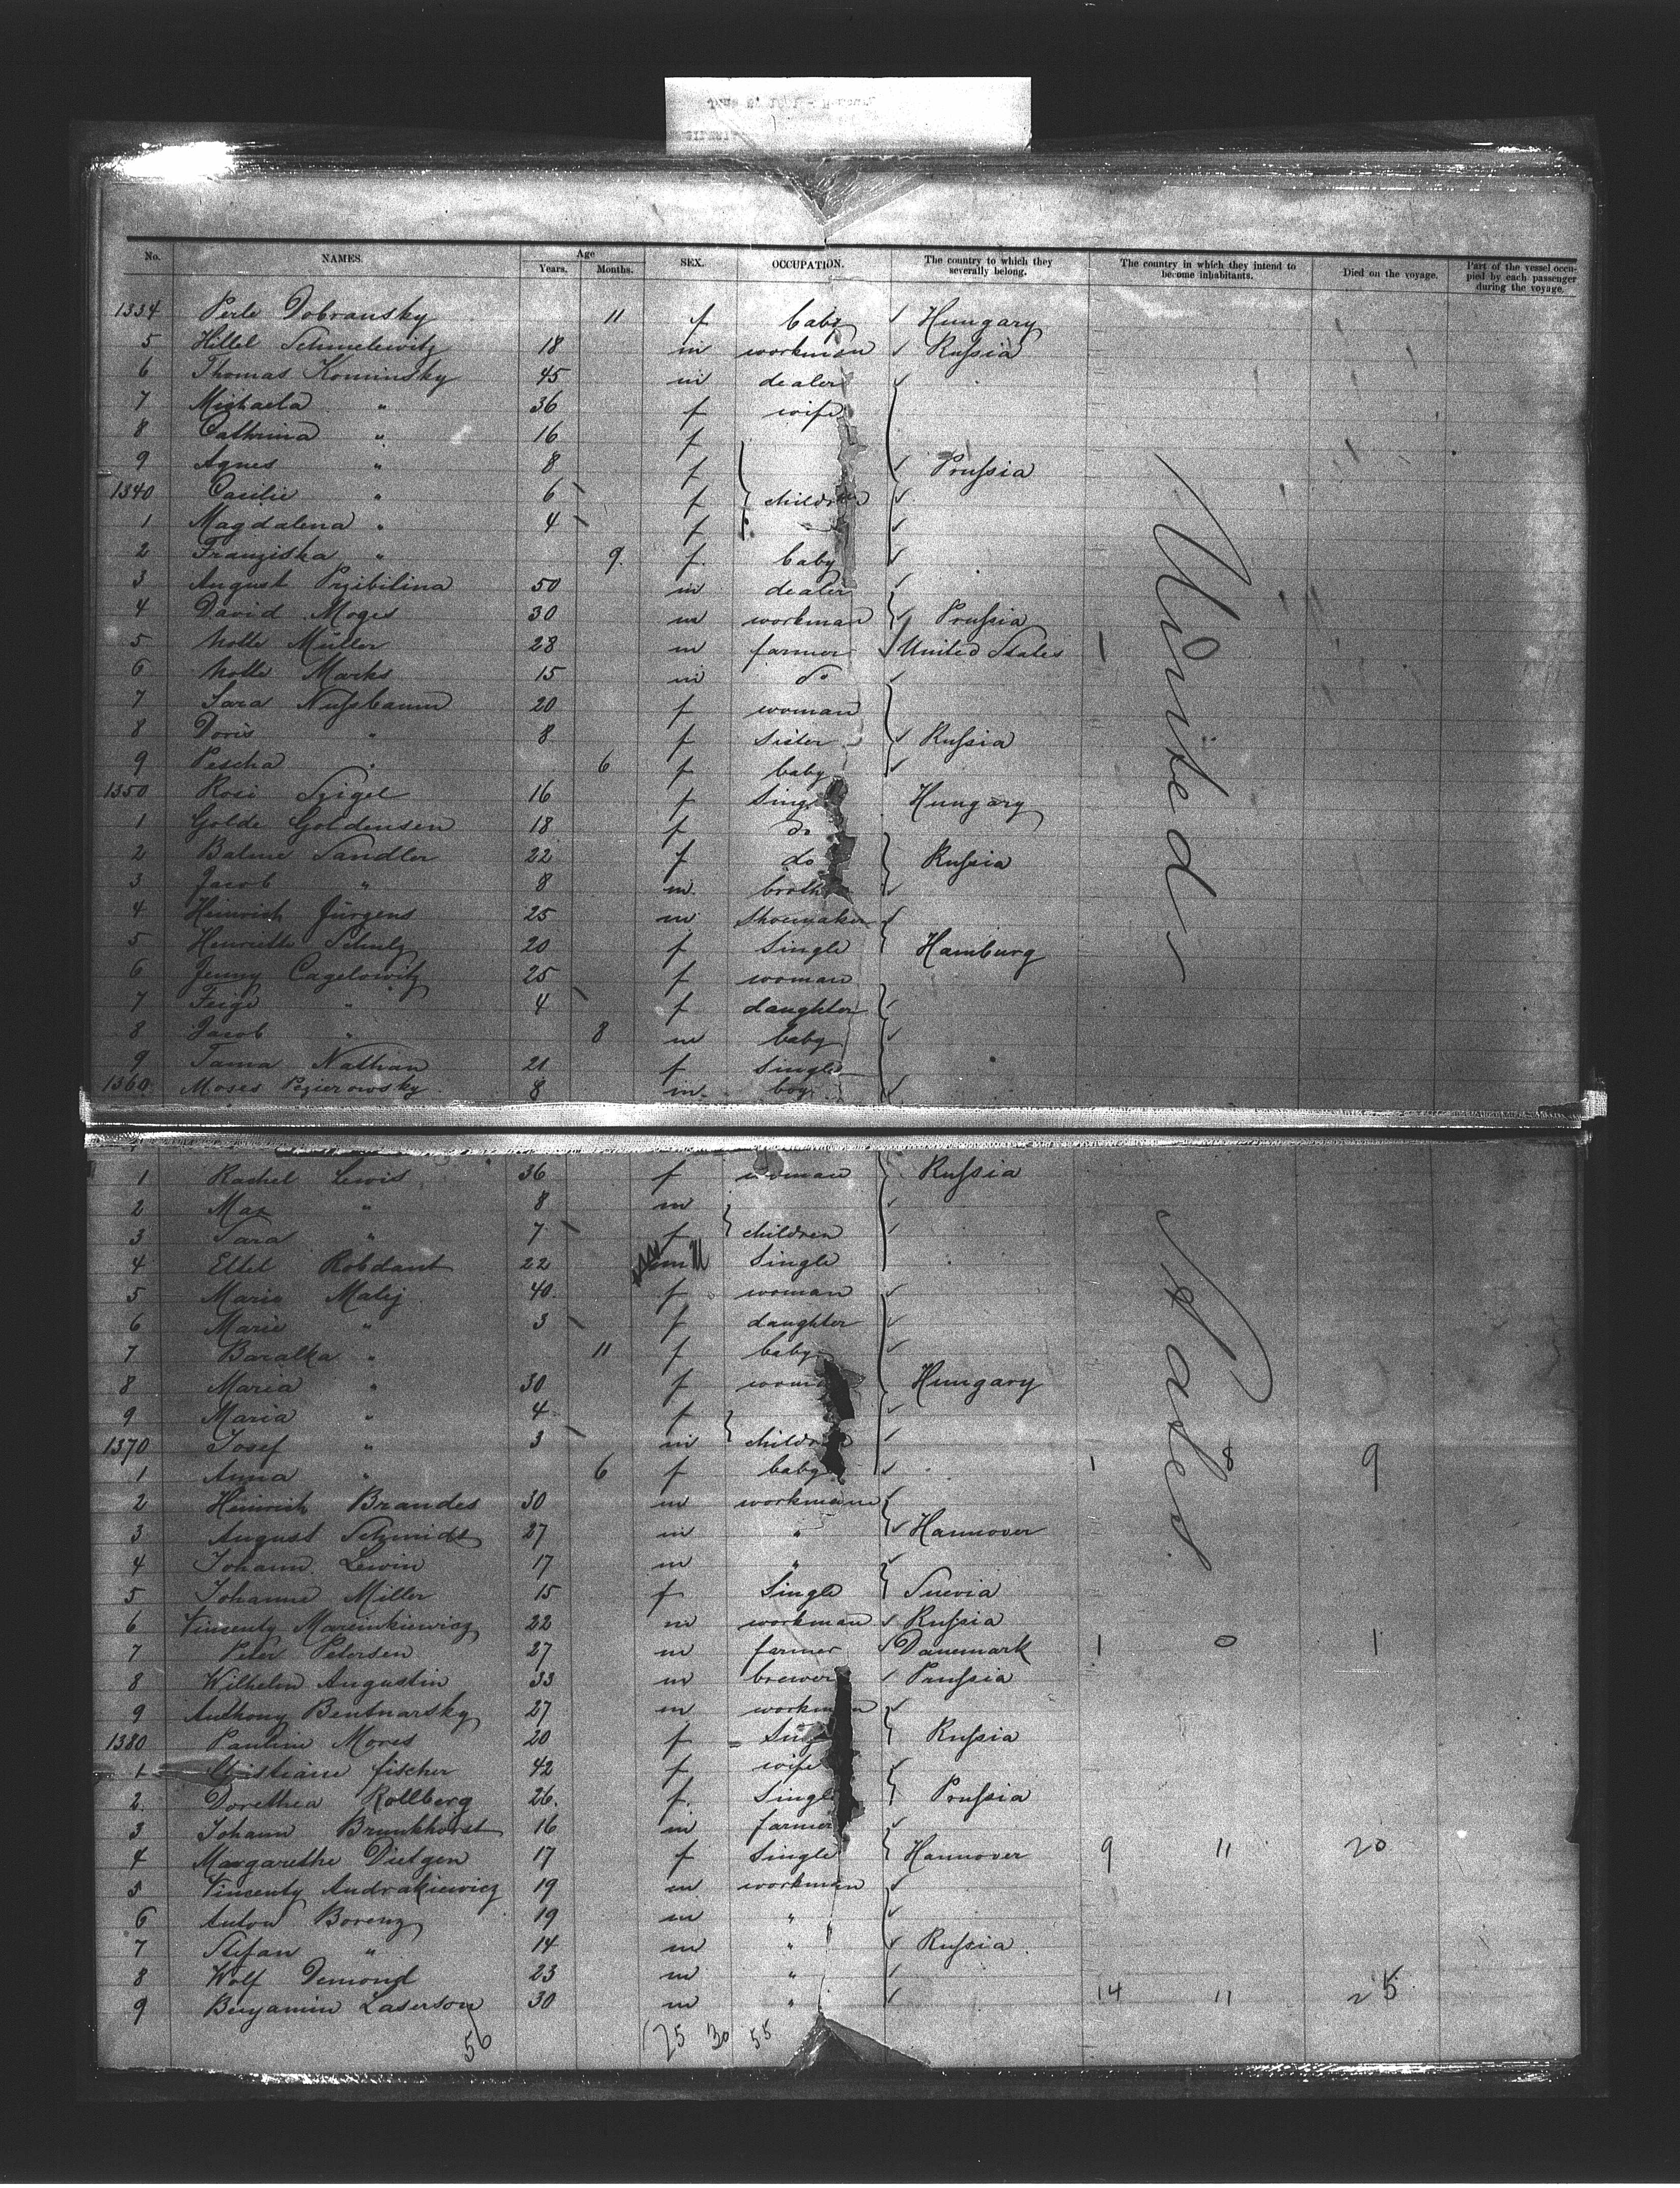 No. NAMES. Age Years. Months. SEX. OCCUPATION. The country to which they severally belong. The country in which they intend to become inhabitants. Died on the voyage. Part of the vessel occupied by each passenger during the voyage.
1334 Perle Dobransky 11 f baby Hungary
5 Hillel Schmelewitz 18 m workman Russia
6 Thomas Kominsky 45 m dealer
7 Michaela " 36 f wife
8 Cathrina " 16 f
9 Agnes " 8 f Prussia
1340 Cacilie " 6 f children
1 Magdalena " 4 f
2 Franziska " 9 f baby
3 August Przibilina 50 m dealer
4 David Moges 30 m workman Prussia
5 Nolte Müller 28 m farmer United States 1
6 Nolte Marks 15 m do
7 Sara Nussbaum 20 f woman
8 Doris " 8 f sister Russia
9 Pescha " 6 f baby
1350 Rosi Szigel 16 f Sing Hungary
1 Golde Goldensen 18 f do
2 Balme Sandler 22 f do Russia
3 Jacob " 8 m broth
4 Heinrich Jürgens 25 m Shoemaker
5 Henriette Schulz 20 f Single Hamburg
6 Jenny Cagelowitz 25 f woman
7 Feige " 4 f daughter
8 Jacob " 8 m baby
9 Tama Nathan 21 f Single
1360 Moses Pezierowsky 8 m boy
United
1 Rachel Lewis 36 f woman Russia
2 Max " 8 m
3 Sara " 7 f children
4 Ettel Robdant 22 m Single
5 Marie Malij 40 f woman
6 Marie " 3 f daughter
7 Baralka " 11 f baby
8 Maria " 30 f woma Hungary
9 Maria " 4 f
1370 Josef " 3 m children
1 Anna " 6 f baby 1 8 9
2 Heinrich Brandes 30 m workmann
3 August Schmidt 27 m " Hannover
4 Johann Lewin 17 m "
5 Johanne Miller 15 f Single Suevia
6 Vincenty Marcinkiewicz 22 m workman Russia
7 Peter Petersen 27 m farmer Danemark 1 0 1
8 Wilhelm Augustin 33 m brewer Prussia
9 Anthony Bentnarsky 27 m workman
1380 Pauline Mores 20 f Sing Russia
1 Christiane Fischer 42 f wife
2 Dorethea Rollberg 26 f Single Prussia
3 Johann Brunkhorst 16 m farmer
4 Margarethe Dietgen 17 f Single Hannover 9 11 20
5 Vincenty Andrakiewicz 19 m workman
6 Anton Borenz 19 m "
7 Stefan " 14 m " Russia
8 Wolf Demond 23 m "
9 Benjamin Laserson 30 m " 14 11 25
States
56 25 30 55